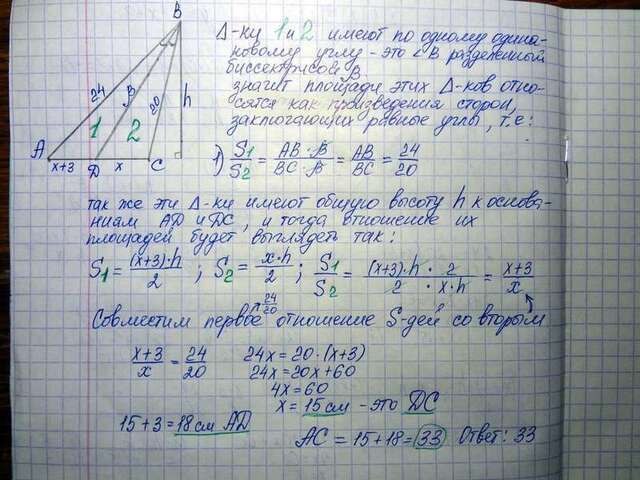 B
24
β
20
h
1
2
A
x+3
D
x
C
Δ-ки 1 и 2 имеют по одному одина-
новому углу - это < B разделенный
биссектрисой β
значит площади этих Δ-ков отно-
сятся как произведения сторон,
заключающих равные углы, т.е:
1) S1/S2 = AB·β/BC·β = AB/BC = 24/20
так же эти Δ-ки имеют общую высоту h к основа-
ниям AD и DC, и тогда отношение их
площадей будет выглядеть так:
S1 = (x+3)·h/2 ; S2 = x·h/2 ; S1/S2 = (x+3)·h/2 · 2/x·h = x+3/x
24/20
Совместим первое отношение S-дей со вторым
x+3/x = 24/20
24x = 20·(x+3)
24x = 20x+60
4x = 60
x = 15 см - это DC
15+3 = 18 см AD
AC = 15+18 = 33 Ответ: 33